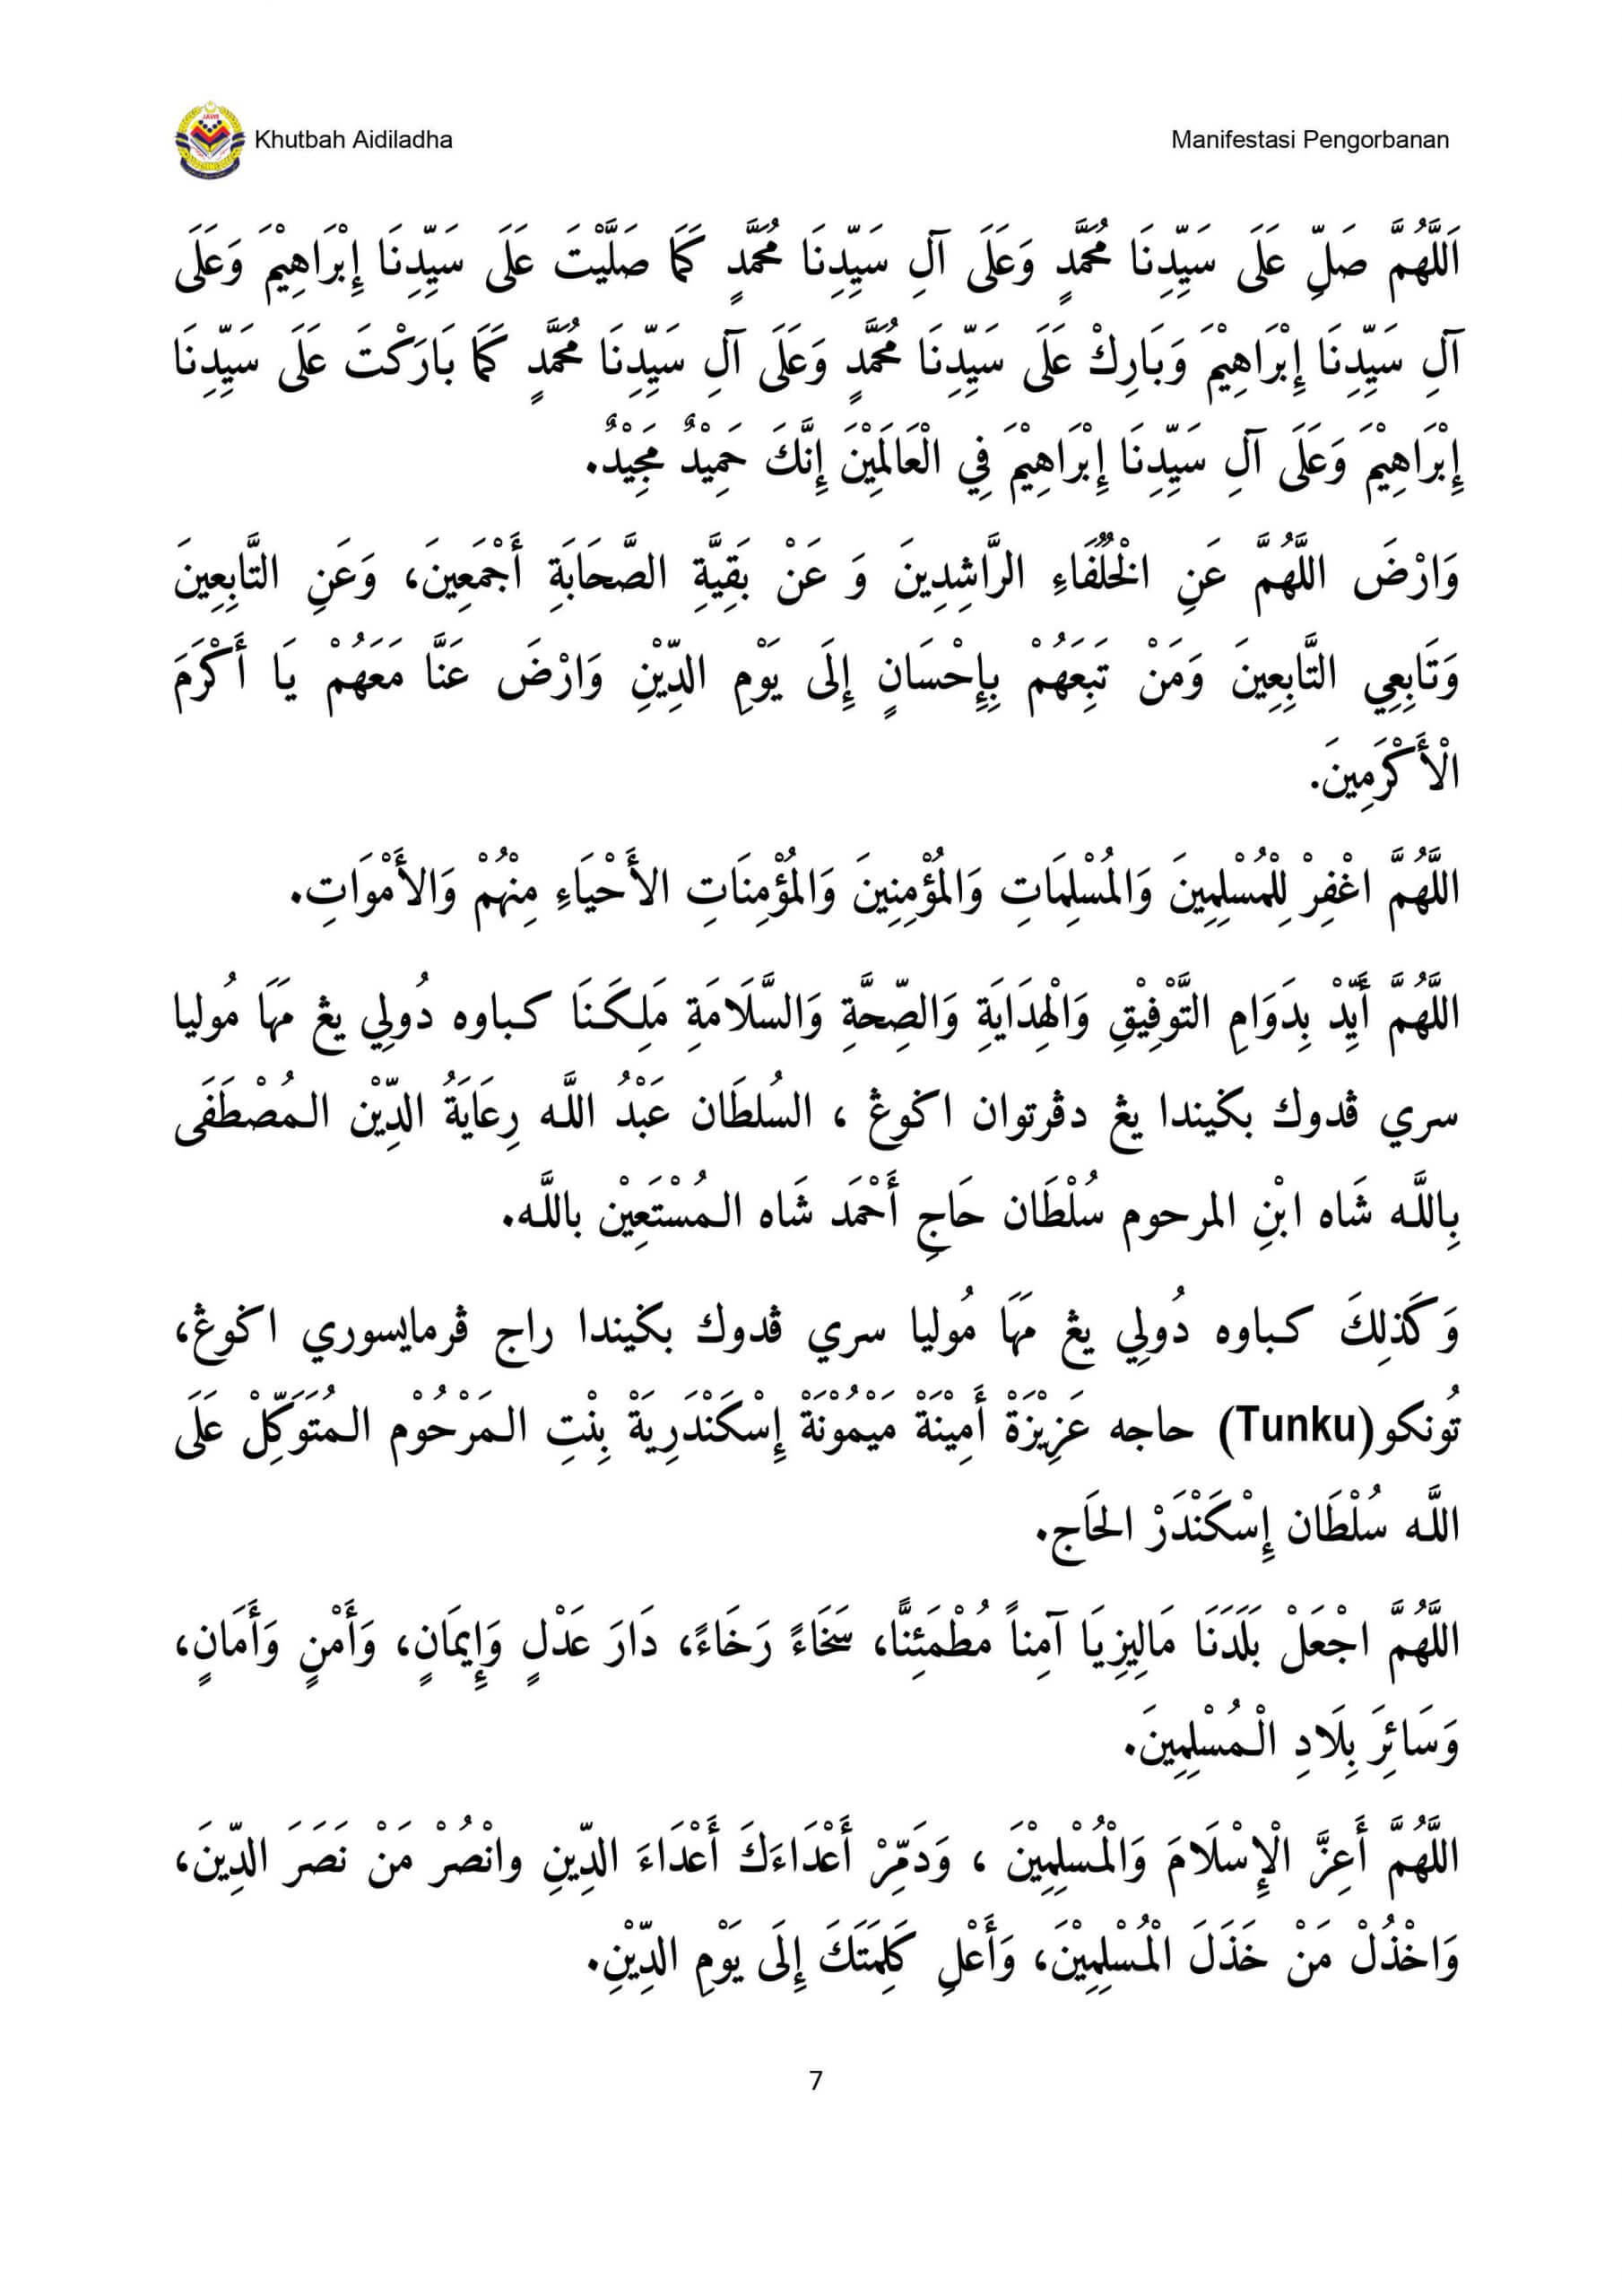 Khutbah Aidiladha
Manifestasi Pengorbanan
اَللَّهُمَّ صَلِّ عَلَى سَيِّدِنَا مُحَمَّدٍ وَعَلَى آلِ سَيِّدِنَا مُحَمَّدٍ كَمَا صَلَّيْتَ عَلَى سَيِّدِنَا إِبْرَاهِيْمَ وَعَلَى
آلِ سَيِّدِنَا إِبْرَاهِيْمَ وَبَارِكْ عَلَى سَيِّدِنَا مُحَمَّدٍ وَعَلَى آلِ سَيِّدِنَا مُحَمَّدٍ كَمَا بَارَكْتَ عَلَى سَيِّدِنَا
إِبْرَاهِيْمَ وَعَلَى آلِ سَيِّدِنَا إِبْرَاهِيْمَ فِي الْعَالَمِيْنَ إِنَّكَ حَمِيْدٌ مَجِيْدٌ.
وَارْضَ اللَّهُمَّ عَنِ الْخُلَفَاءِ الرَّاشِدِينَ وَ عَنْ بَقِيَّةِ الصَّحَابَةِ أَجْمَعِينَ، وَعَنِ التَّابِعِينَ
وَتَابِعِي التَّابِعِينَ وَمَنْ تَبِعَهُمْ بِإِحْسَانٍ إِلَى يَوْمِ الدِّيْنِ وَارْضَ عَنَّا مَعَهُمْ يَا أَكْرَمَ
الْأَكْرَمِينَ.
اللَّهُمَّ اغْفِرْ لِلْمُسْلِمِينَ وَالمُسْلِمَاتِ وَالمُؤْمِنِينَ وَالمُؤْمِنَاتِ الأَحْيَاءِ مِنْهُمْ وَالأَمْوَاتِ.
اللَّهُمَّ أَيِّدْ بِدَوَامِ التَّوْفِيْقِ وَالْهِدَايَةِ وَالصِّحَّةِ وَالسَّلَامَةِ مَلِكَنَا كباوه دُولِي يڠ مَهَا مُوليا
سري ڤدوك بݢيندا يڠ دڤرتوان اݢوڠ ، السُلطَان عَبْدُ اللَّه رِعَايَةُ الدِّيْن المُصْطَفَى
بِاللَّه شَاه ابْنِ المرحوم سُلْطَان حَاجِ أَحْمَد شَاه المُسْتَعِيْن باللَّه.
وَكَذلِكَ كباوه دُولِي يڠ مَهَا مُوليا سري ڤدوك بݢيندا راج ڤرمايسوري اݢوڠ،
تُونكو(Tunku) حاجه عَزِيْزَةْ أَمِيْنَةْ مَيْمُوْنَةْ إِسْكَنْدَرِيَةْ بِنْتِ المَرْحُوْم المُتَوَكِّلْ عَلَى
اللَّه سُلْطَان إِسْكَنْدَرْ الحَاج.
اللَّهُمَّ اجْعَلْ بَلَدَنَا مَالِيزِيَا آمِناً مُطْمَئِنًّا، سَخَاءً رَخَاءً، دَارَ عَدْلٍ وَإِيمَانٍ، وَأَمْنٍ وَأَمَانٍ،
وَسَائِرَ بِلَادِ الْمُسْلِمِينَ.
اللَّهُمَّ أَعِزَّ الْإِسْلَامَ وَالْمُسْلِمِيْنَ ، وَدَمِّرْ أَعْدَاءَكَ أَعْدَاءَ الدِّينِ وانْصُرْ مَنْ نَصَرَ الدِّينَ،
وَاخْذُلْ مَنْ خَذَلَ الْمُسْلِمِيْنَ، وَأَعْلِ كَلِمَتَكَ إِلَى يَوْمِ الدِّيْنِ.
7